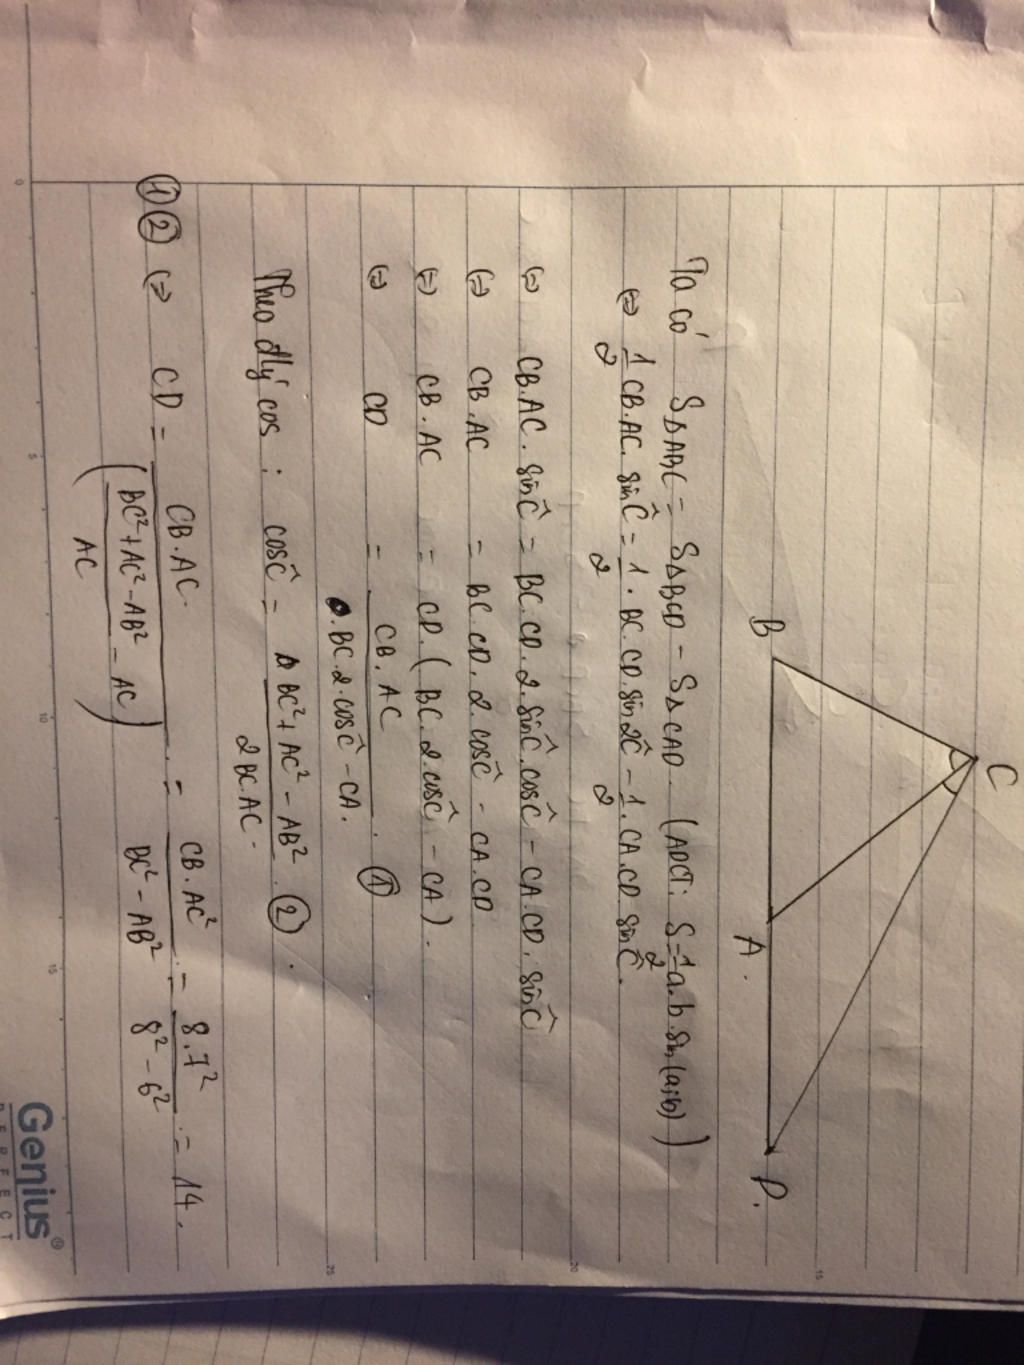 C
B
A.
D.
Ta có S∆ABC = S∆BCD - S∆CAD. (ADCT: S = 1/2 a.b.sin(a;b))
⇔ 1/2 CB.AC. sinĈ = 1/2 . BC.CD.sin2Ĉ - 1/2 . CA.CD.sinĈ.
⇔ CB.AC. sinĈ = BC.CD.2.sinĈ.cosĈ - CA.CD. sinĈ
⇔ CB.AC = BC.CD.2.cosĈ - CA.CD
⇔ CB.AC = CD.(BC.2.cosĈ - CA).
⇔ CD = CB.AC / .BC.2.cosĈ - CA. . ①
Theo đlý cos : cosĈ = BC² + AC² - AB² / 2BC.AC. . ② .
①② ⇒ CD = CB.AC. / (BC² + AC² - AB² / AC - AC) . = CB.AC² / BC² - AB² = 8.7² / 8² - 6² . = 14.
0 5 10 15
15 20 25
Genius®
PERFECT